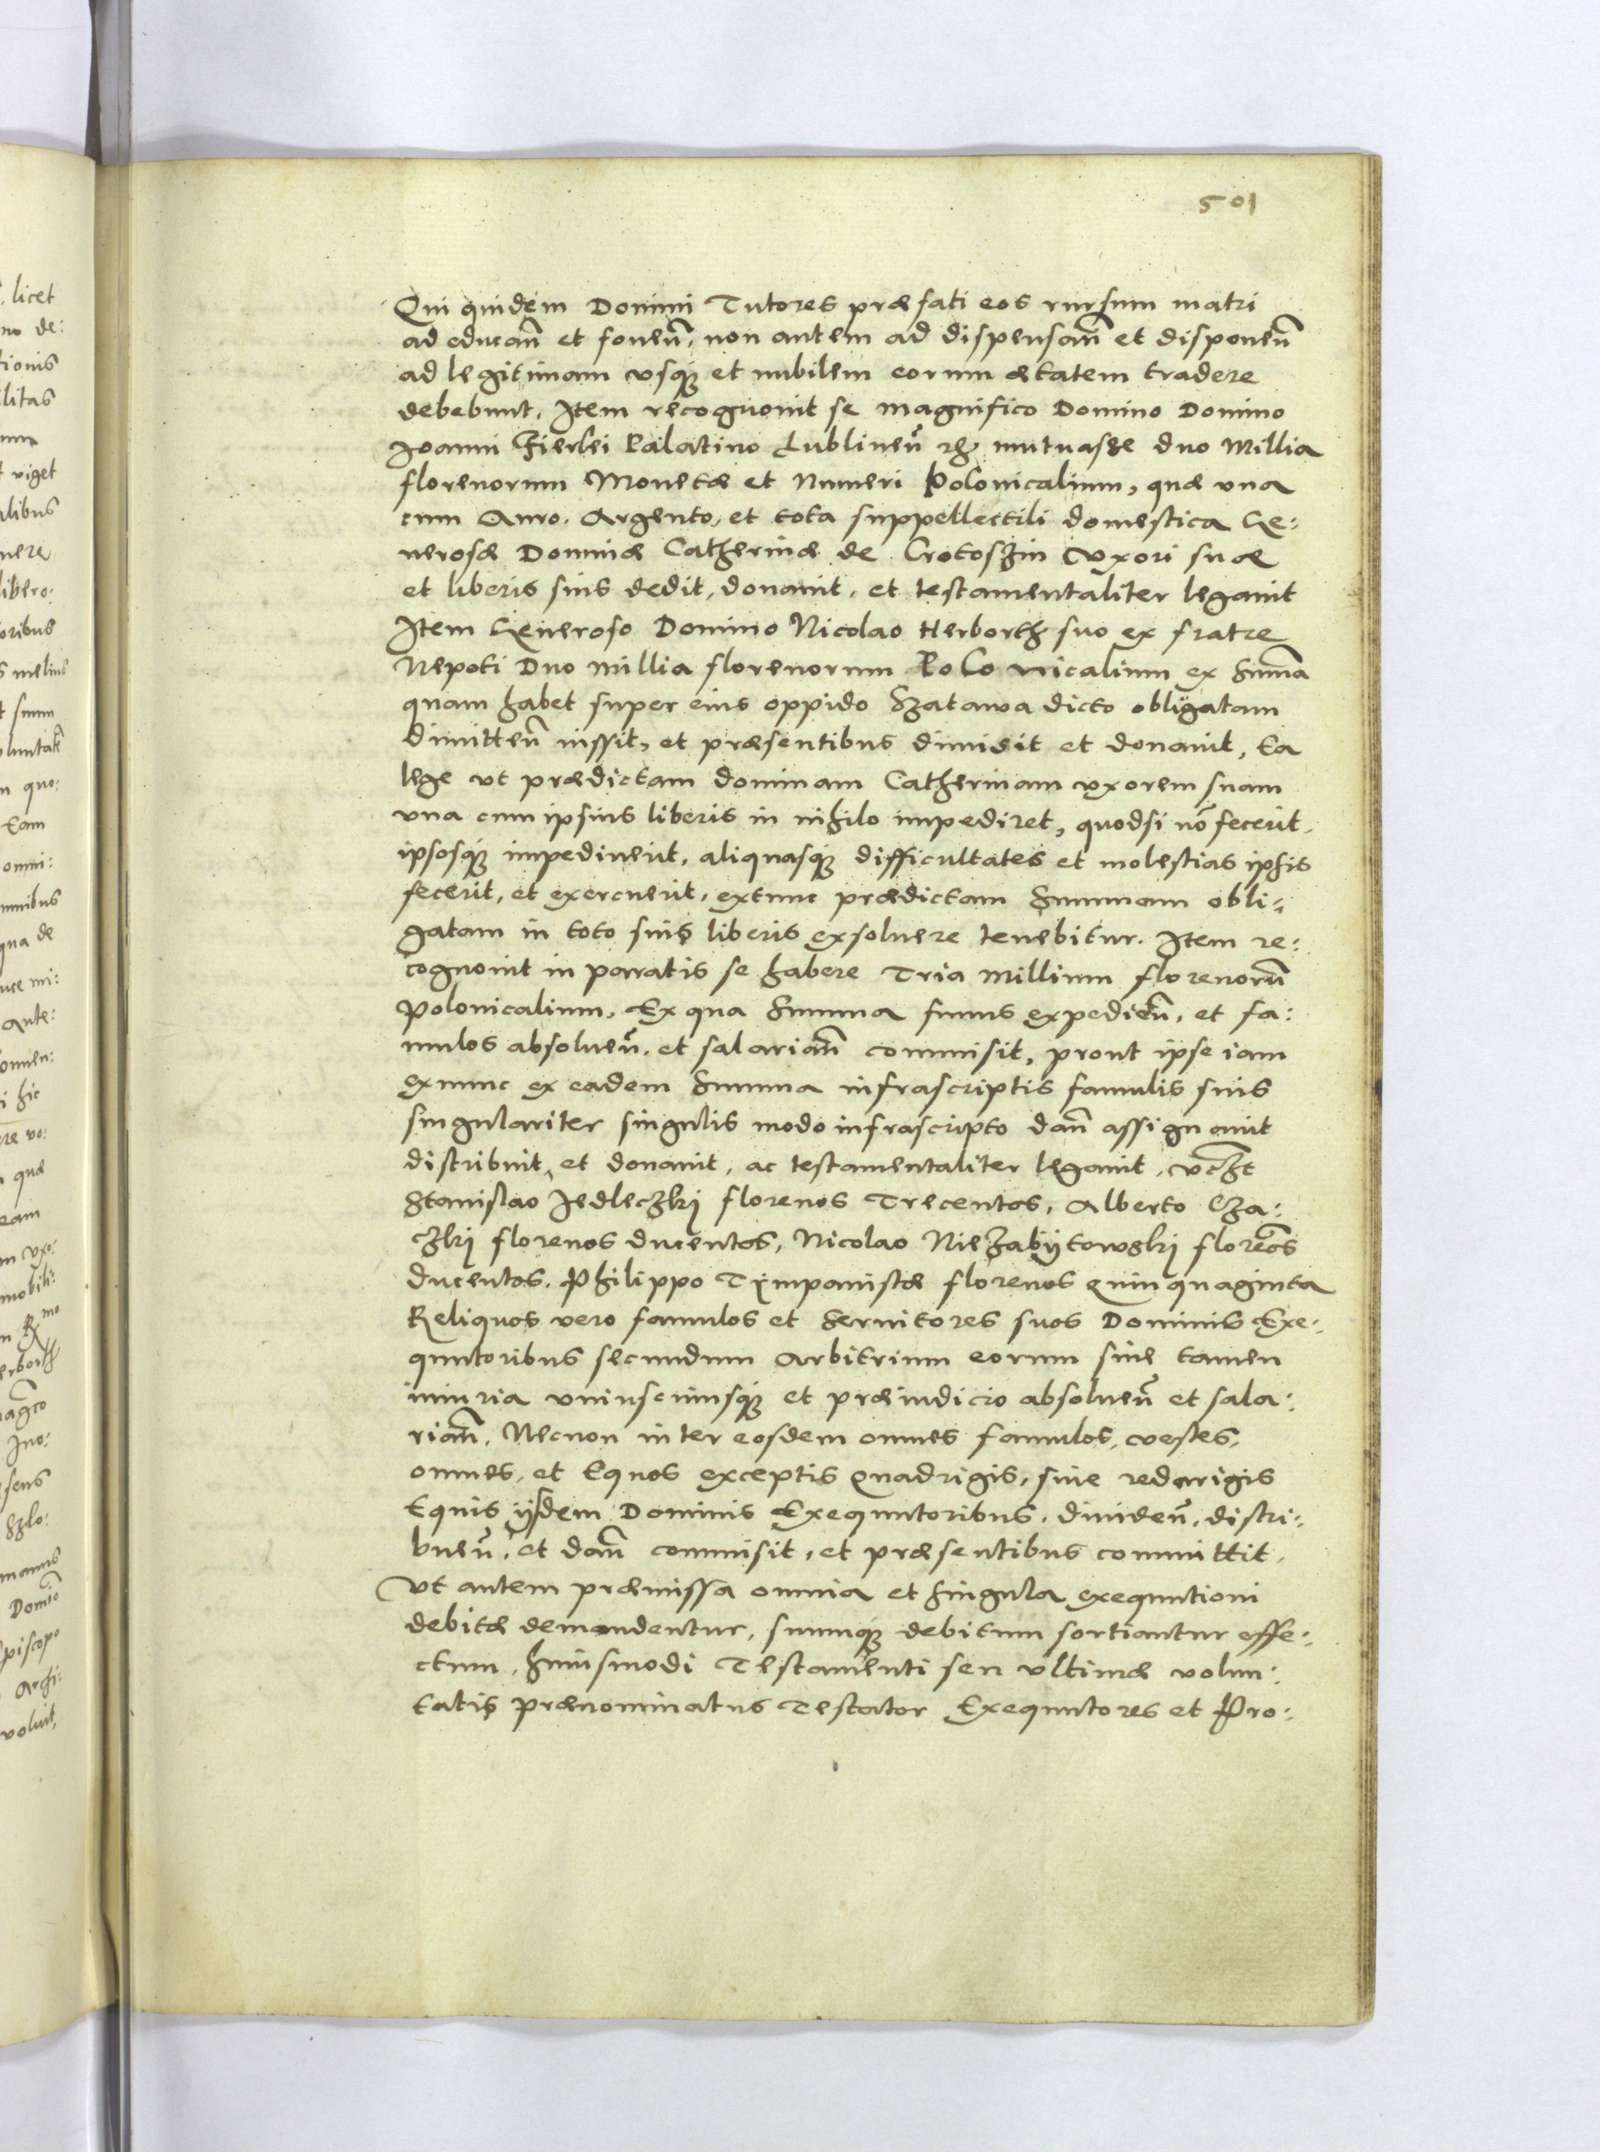 501
Qui quidem Domini Tutores præfati eos rursum matri
ad educañ et foueñ, non autem ad dispensañ et disponeñ
ad legitimam vsq₃ et nubilem eorum ætatem tradere
debebunt. Item recognouit se magnifico Domino Domino
Joanni Fierlei Palatino Lublineñ rc̃ mutuasse duo Millia
florenorum Monetæ et Numeri Polonicalium, quæ vna
cum Auro, Argento, et tota suppellectili domestica Ge:
nerosæ Dominæ Catherinæ de Crotoszin Vxori suæ
et liberis suis dedit, donauit, et testamentaliter legauit
Item Generoso Domino Nicolao Herborth suo ex fratre
Nepoti Duo millia florenorum Polonicalium ex summa
quam habet super eius oppido Szatawa dicto obligatam
dimitteñ iussit, et præsentibus dimisit et donauit, Ea
lege vt prædictam dominam Catherinam vxorem suam
vna cum ipsius liberis in nihilo impediret, quodsi nõ fecerit,
ipsosq₃ impediuerit, aliquasq₃ difficultates et molestias ipsis
fecerit, et exercuerit, extunc prædictam Summam obli:
gatam in toto suis liberis exsoluere tenebitur. Item re:
cognouit in paratis se habere Tria Millium florenorũ
Polonicalium, Ex qua Summa funus expedieñ, et fa:
mulos absolueñ, et salariañ commisit, prout ipse iam
exnunc ex eadem Summa infrascriptis famulis suis
singulariter singulis modo infrascripto dañ assignauit
distribuit, et donauit, ac testamentaliter legauit, vcz̃t
Stanislao Jedleczkij florenos Trecentos, Alberto Cza:
czkij florenos ducentos, Nicolao Niezabijtowskij florẽos
ducentos, Philippo Tÿmpanistæ florenos Quinquaginta
Reliquos vero famulos et seruitores suos Dominis Exe:
quutoribus secundum arbitrium eorum sine tamen
iniuria vniuscuiusq₃ et præiudicio absolueñ et sala:
riañ. Necnon inter eosdem omnes famulos, vestes,
omnes, et Equos exceptis Quadrigis, siue redarigis
Equis ijsdem Dominis Exequutoribus, diuideñ, distri:
bueñ, et dañ commisit, et præsentibus committit,
Vt autem præmissa omnia et singula exequutioni
debitæ demandentur, suumq₃ debitum sortiantur effe:
ctum, huiusmodi Testamenti seu vltimæ volun:
tatis prænominatus Testator Exequutores et Pro: